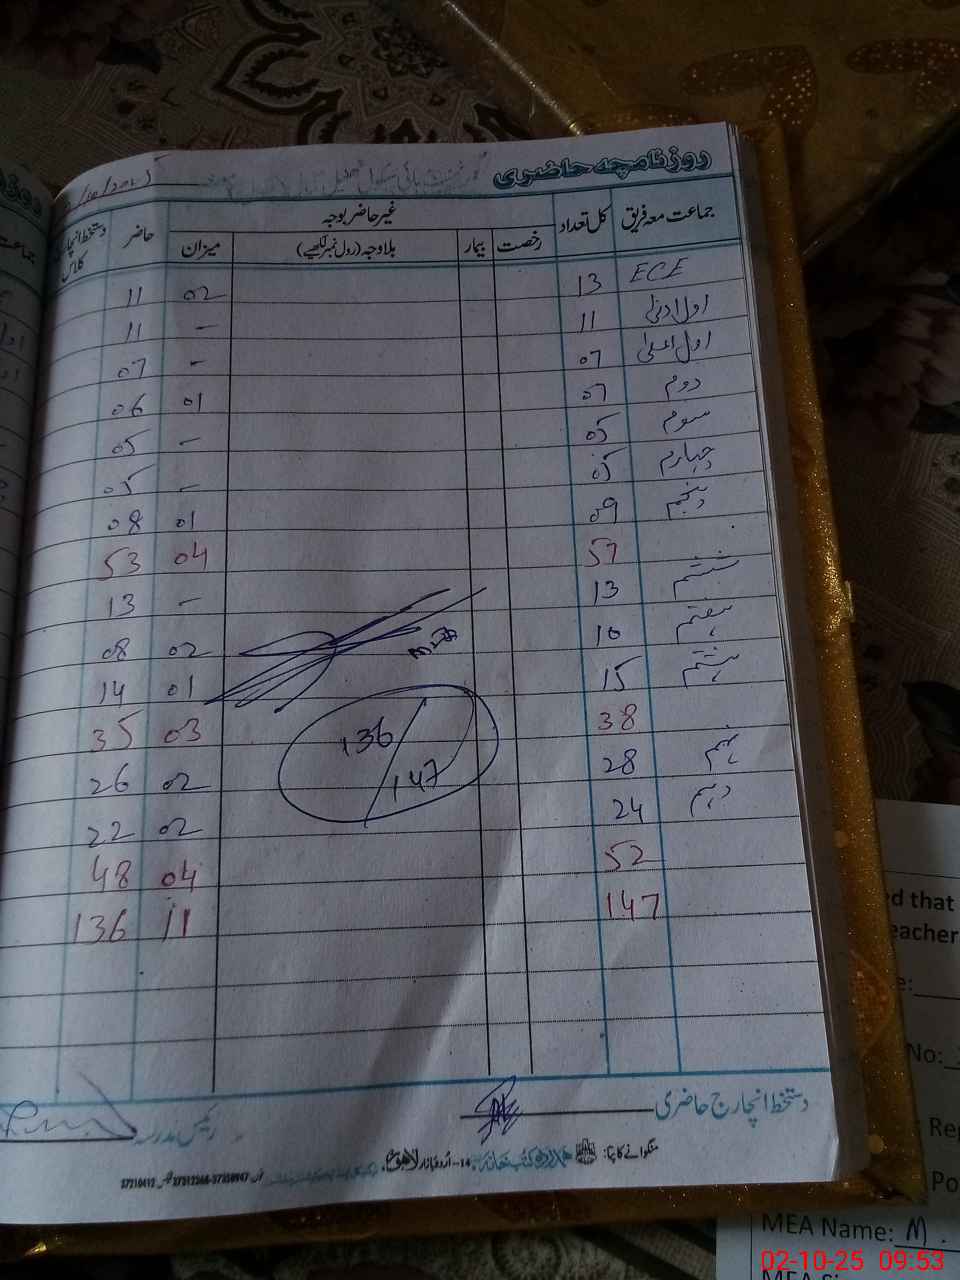 روزنامچہ حاضری
جماعت معہ فریق کل تعداد غیر حاضر بوجہ حاضر دستخط انچارج کلاس
رخصت بیمار بلاوجہ (رول نمبر لکھیے) میزان
ECE 13 02 11
اول ادنیٰ 11 - 11
اول اعلیٰ 07 - 07
دوم 07 01 06
سوم 05 - 05
چہارم 05 - 05
پنجم 09 01 08
57 04 53
ششم 13 - 13
ہفتم 10 02 08
ہشتم 15 01 14
38 03 35
136/147
نہم 28 02 26
دہم 24 02 22
52 04 48
147 11 136
دستخط انچارج حاضری
رئیس مدرسہ
منگوانے کا پتا: کتب خانہ 14-اُردو بازار لاہور
ed that
eacher
e:
No:
Rep
Po
MEA Name: M.
02-10-25 09:53